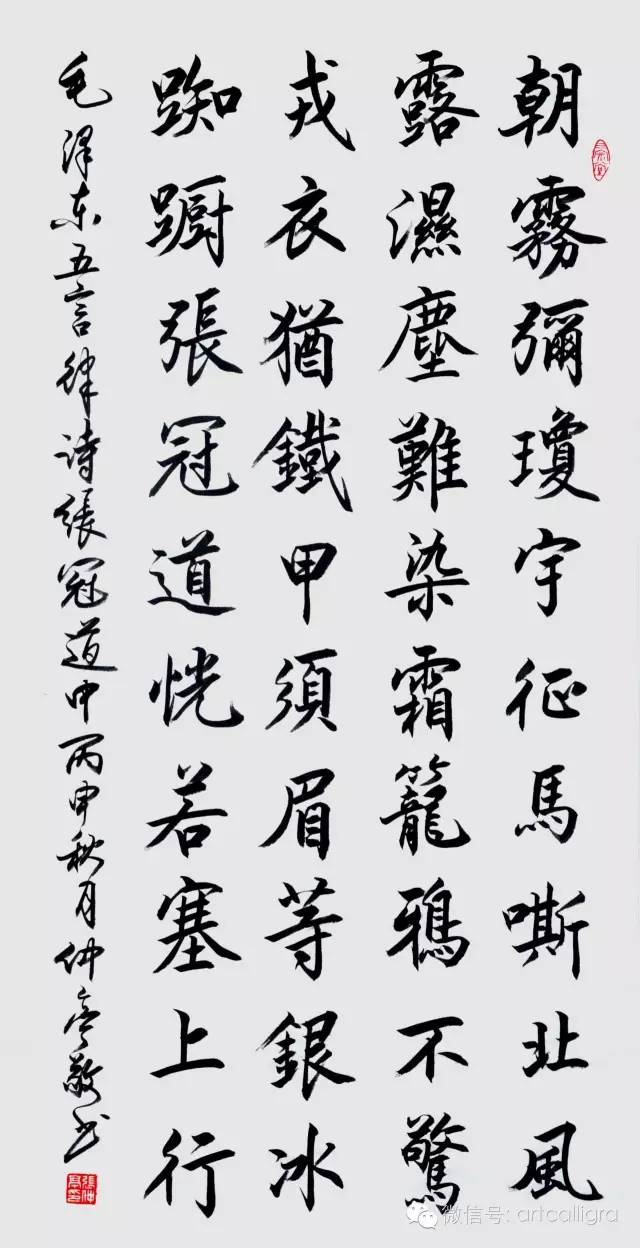 朝霧彌瓊宇征馬嘶北風
露濕塵難染霜籠鴉不驚
戎衣猶鐵甲須眉等銀冰
踟蹰張冠道恍若塞上行
毛泽东五言律诗張冠道中丙申秋月仲亭敬书
張仲亭印
微信号: artcalligra